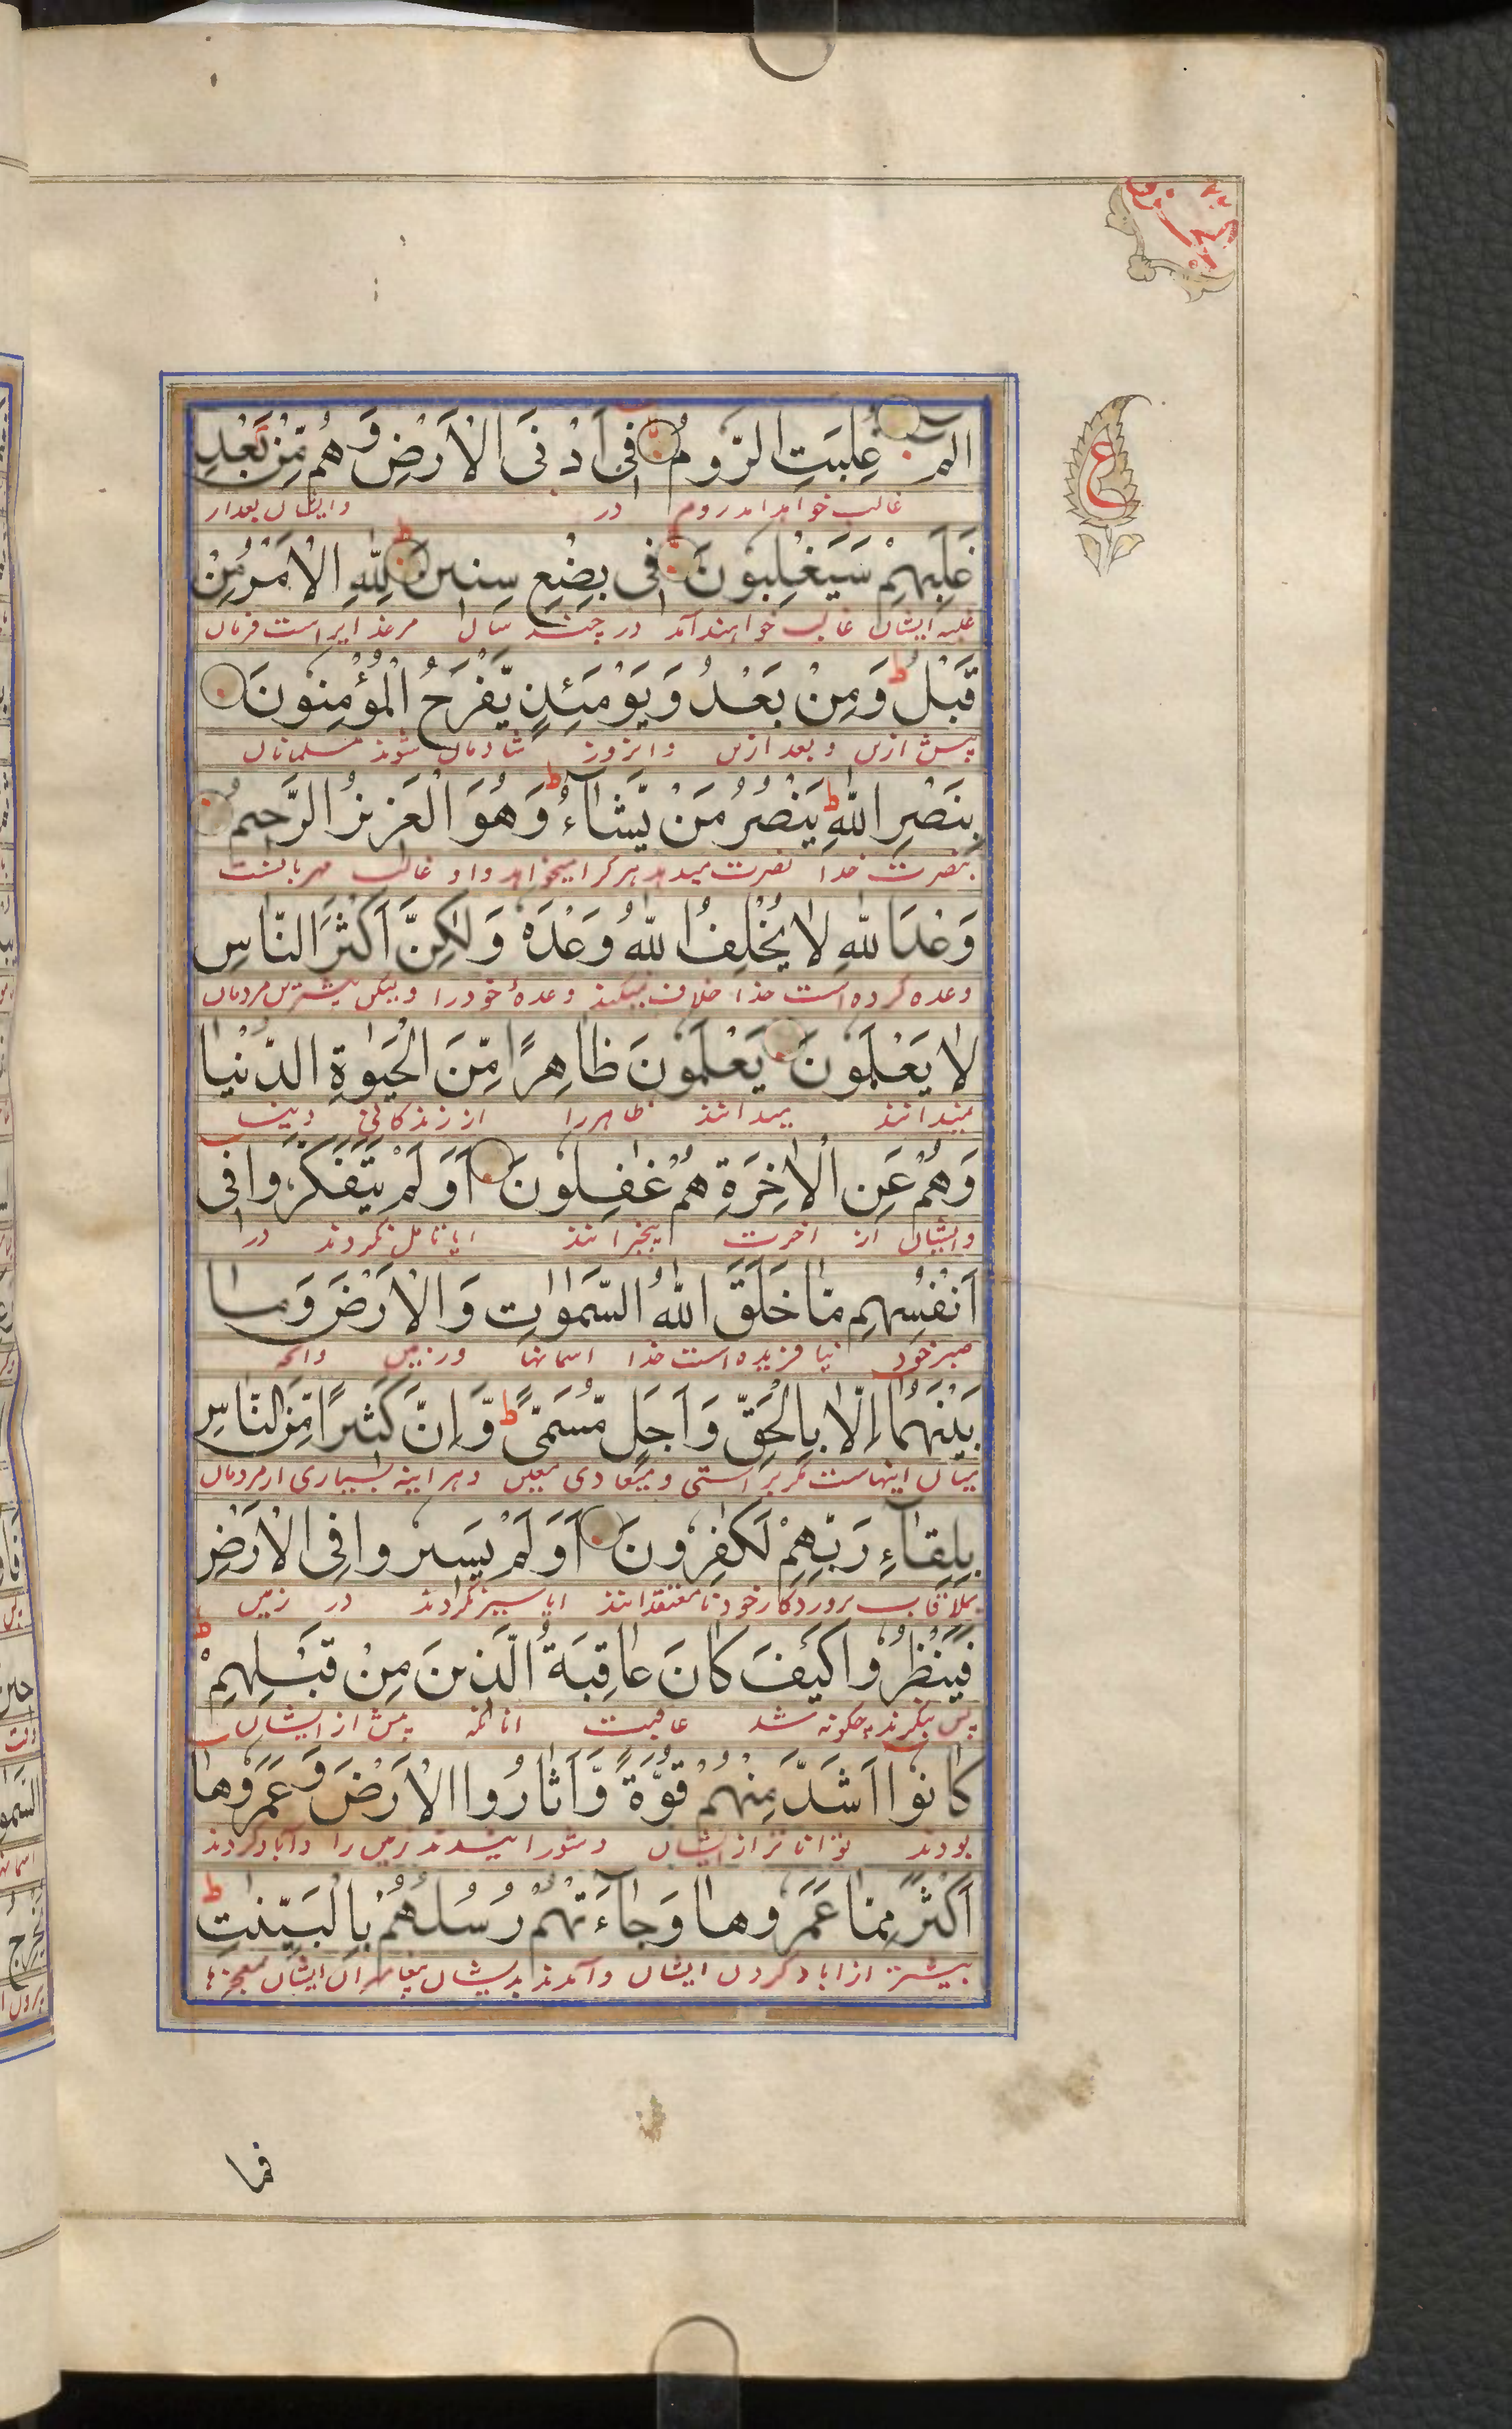 ع
الٓمٓ غُلِبَتِ الرُّومُ فِىٓ اَدْنَى الْاَرْضِ وَهُمْ مِّنْۢ بَعْدِ
غالب خواهد امد روم در وایشان بعد از
غَلَبِهِمْ سَيَغْلِبُونَ فِى بِضْعِ سِنِينَ لِلّٰهِ الْاَمْرُ مِنْ
غلبه ایشان غالب خواهند آمد در چند سال مر خدایراست فرمان
قَبْلُ وَمِنْ بَعْدُ وَيَوْمَئِذٍ يَّفْرَحُ الْمُؤْمِنُونَ
پیش ازین و بعد ازین وانروز شادمان شوند مسلمانان
بِنَصْرِ اللّٰهِ يَنْصُرُ مَنْ يَّشَآءُ وَهُوَ الْعَزِيزُ الرَّحِيمُ
بنصرت خدا نصرت میدهد هرکرا میخواهد و او غالب مهربانست
وَعْدَ اللّٰهِ لَا يُخْلِفُ اللّٰهُ وَعْدَهٗ وَلٰكِنَّ اَكْثَرَ النَّاسِ
وعده کرده است خدا خلاف نمیکند وعدهٔ خود را ولیکن بیشترین مردمان
لَا يَعْلَمُونَ يَعْلَمُونَ ظَاهِرًا مِّنَ الْحَيٰوةِ الدُّنْيَا
نمیدانند میدانند ظاهر را از زندکانی دنیا
وَهُمْ عَنِ الْاٰخِرَةِ هُمْ غٰفِلُونَ اَوَلَمْ يَتَفَكَّرُوا فِىٓ
وایشان از اخرت بیخبرانند ایا تامل نکردند در
اَنْفُسِهِمْ مَا خَلَقَ اللّٰهُ السَّمٰوٰتِ وَالْاَرْضَ وَمَا
خود نیافریده است خدا اسمانها وزمین وانچه
بَيْنَهُمَآ اِلَّا بِالْحَقِّ وَاَجَلٍ مُّسَمًّى وَّاِنَّ كَثِيرًا مِّنَ النَّاسِ
میان اینهاست مکر براستی و میعادی معین و هر اینه بسیاری از مردمان
بِلِقَآءِ رَبِّهِمْ لَكٰفِرُونَ اَوَلَمْ يَسِيرُوا فِى الْاَرْضِ
بملاقات پروردکار خود نامعتقدانند ایا سیر نکردند در زمین
فَيَنْظُرُوا كَيْفَ كَانَ عَاقِبَةُ الَّذِينَ مِنْ قَبْلِهِمْ
پس بنکرند چکونه شد عاقبت انانکه پیش از ایشان
كَانُوٓا اَشَدَّ مِنْهُمْ قُوَّةً وَّاَثَارُوا الْاَرْضَ وَعَمَرُوهَآ
بودند تواناتر از ایشان و شورانیدند زمین را و آباد کردند
اَكْثَرَ مِمَّا عَمَرُوهَا وَجَآءَتْهُمْ رُسُلُهُمْ بِالْبَيِّنٰتِ
بیشتر از اباد کردن ایشان و آمدند بدیشان پیغامبران ایشان بمعجزها
فما